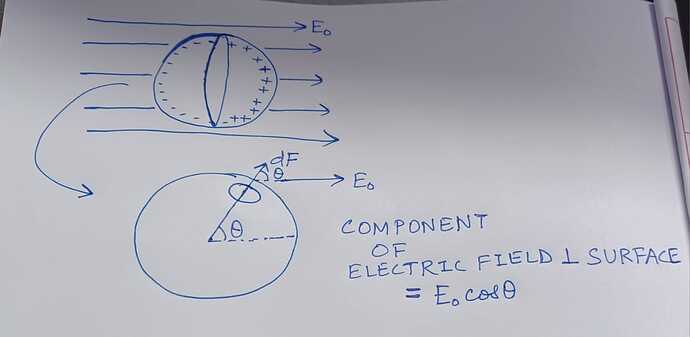 E₀
dF
θ
E₀
θ
COMPONENT
OF
ELECTRIC FIELD ⊥ SURFACE
= E₀ cosθ